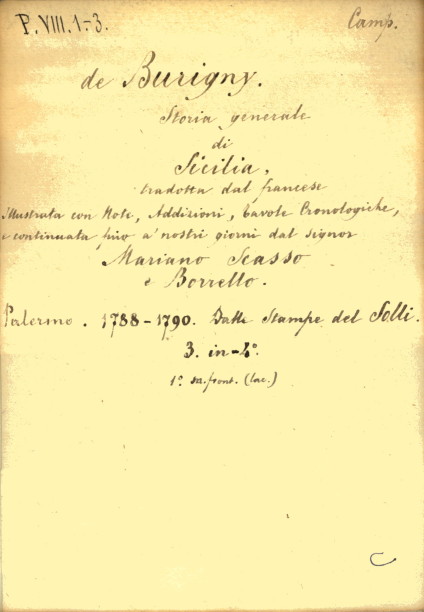 P. VIII. 1-3.
Camp.
de Burigny.
Storia generale
di
Sicilia,
tradotta dal francese
illustrata con Note, Addizioni, Tavole Cronologiche,
e continuata fino a' nostri giorni dal signor
Mariano Scasso
e Borrello.
Palermo. 1788-1790. Dalle Stampe del Solli.
3. in-4º.
1º front. (lac.)
C